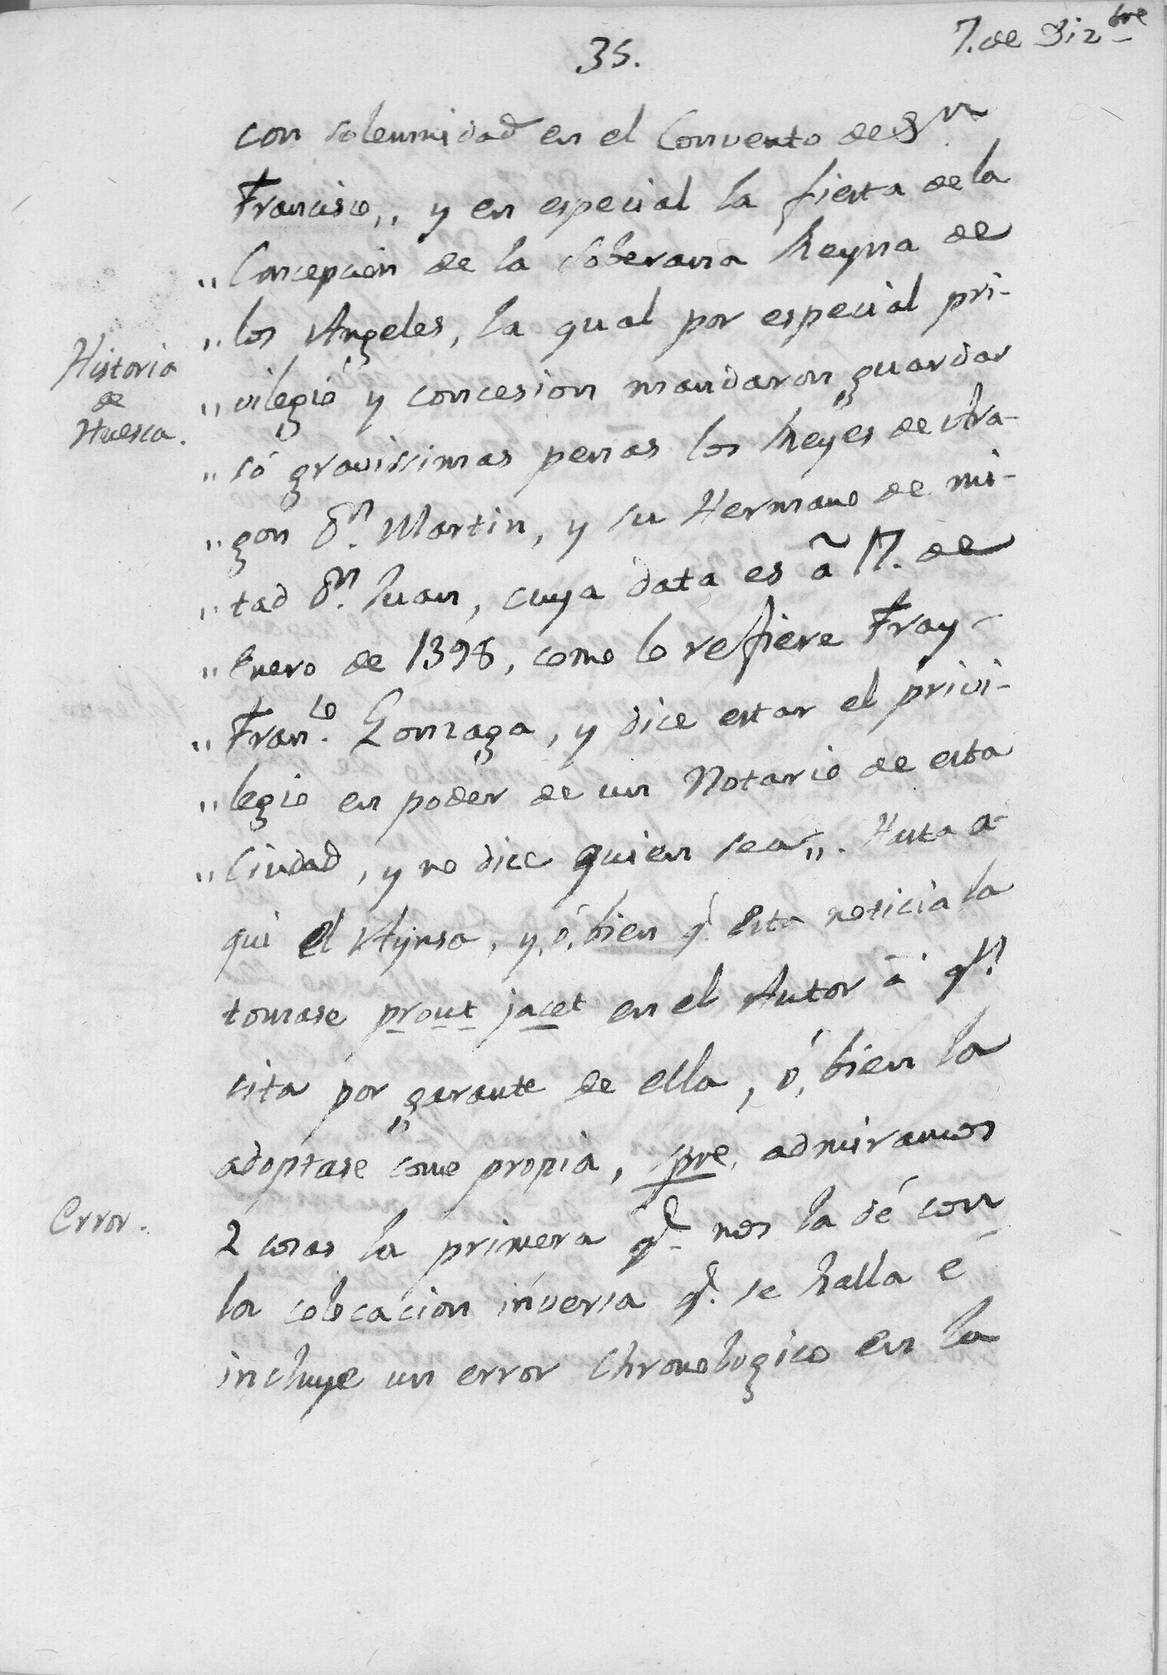 35.
7. de Diz.bre
con solemnidad en el Convento de Sn.
Francisco,, y en especial la fiesta de la
,, Concepcion de la Soberana Reyna de
,, los Angeles, la qual por especial pri-
Historia
de
Huesca.
,, vilegio y concesion mandaron guardar
,, só gravissimas penas los Reyes de Ara-
,, gon Dn. Martin, y su Hermano de mi-
,, tad Dn. Juan, cuya data es â 17. de
,, Enero de 1398, como lo refiere Fray
,, Franco. Gonzaga, y dice estar el privi-
,, legio en poder de un Notario de esta
,, Ciudad, y no dice quien sea,,. Hasta a-
qui el Aynsa, y, ó, bien q.e esta noticia la
tomase prout jacet en el Autor â qn.
cita por garante de ella, ó, bien la
adoptase como propia, spre. admiramos
Error.
2 cosas la primera q.e nos la dé con
la colocacion inversa q.e se halla é
incluye un error Chronologico en la